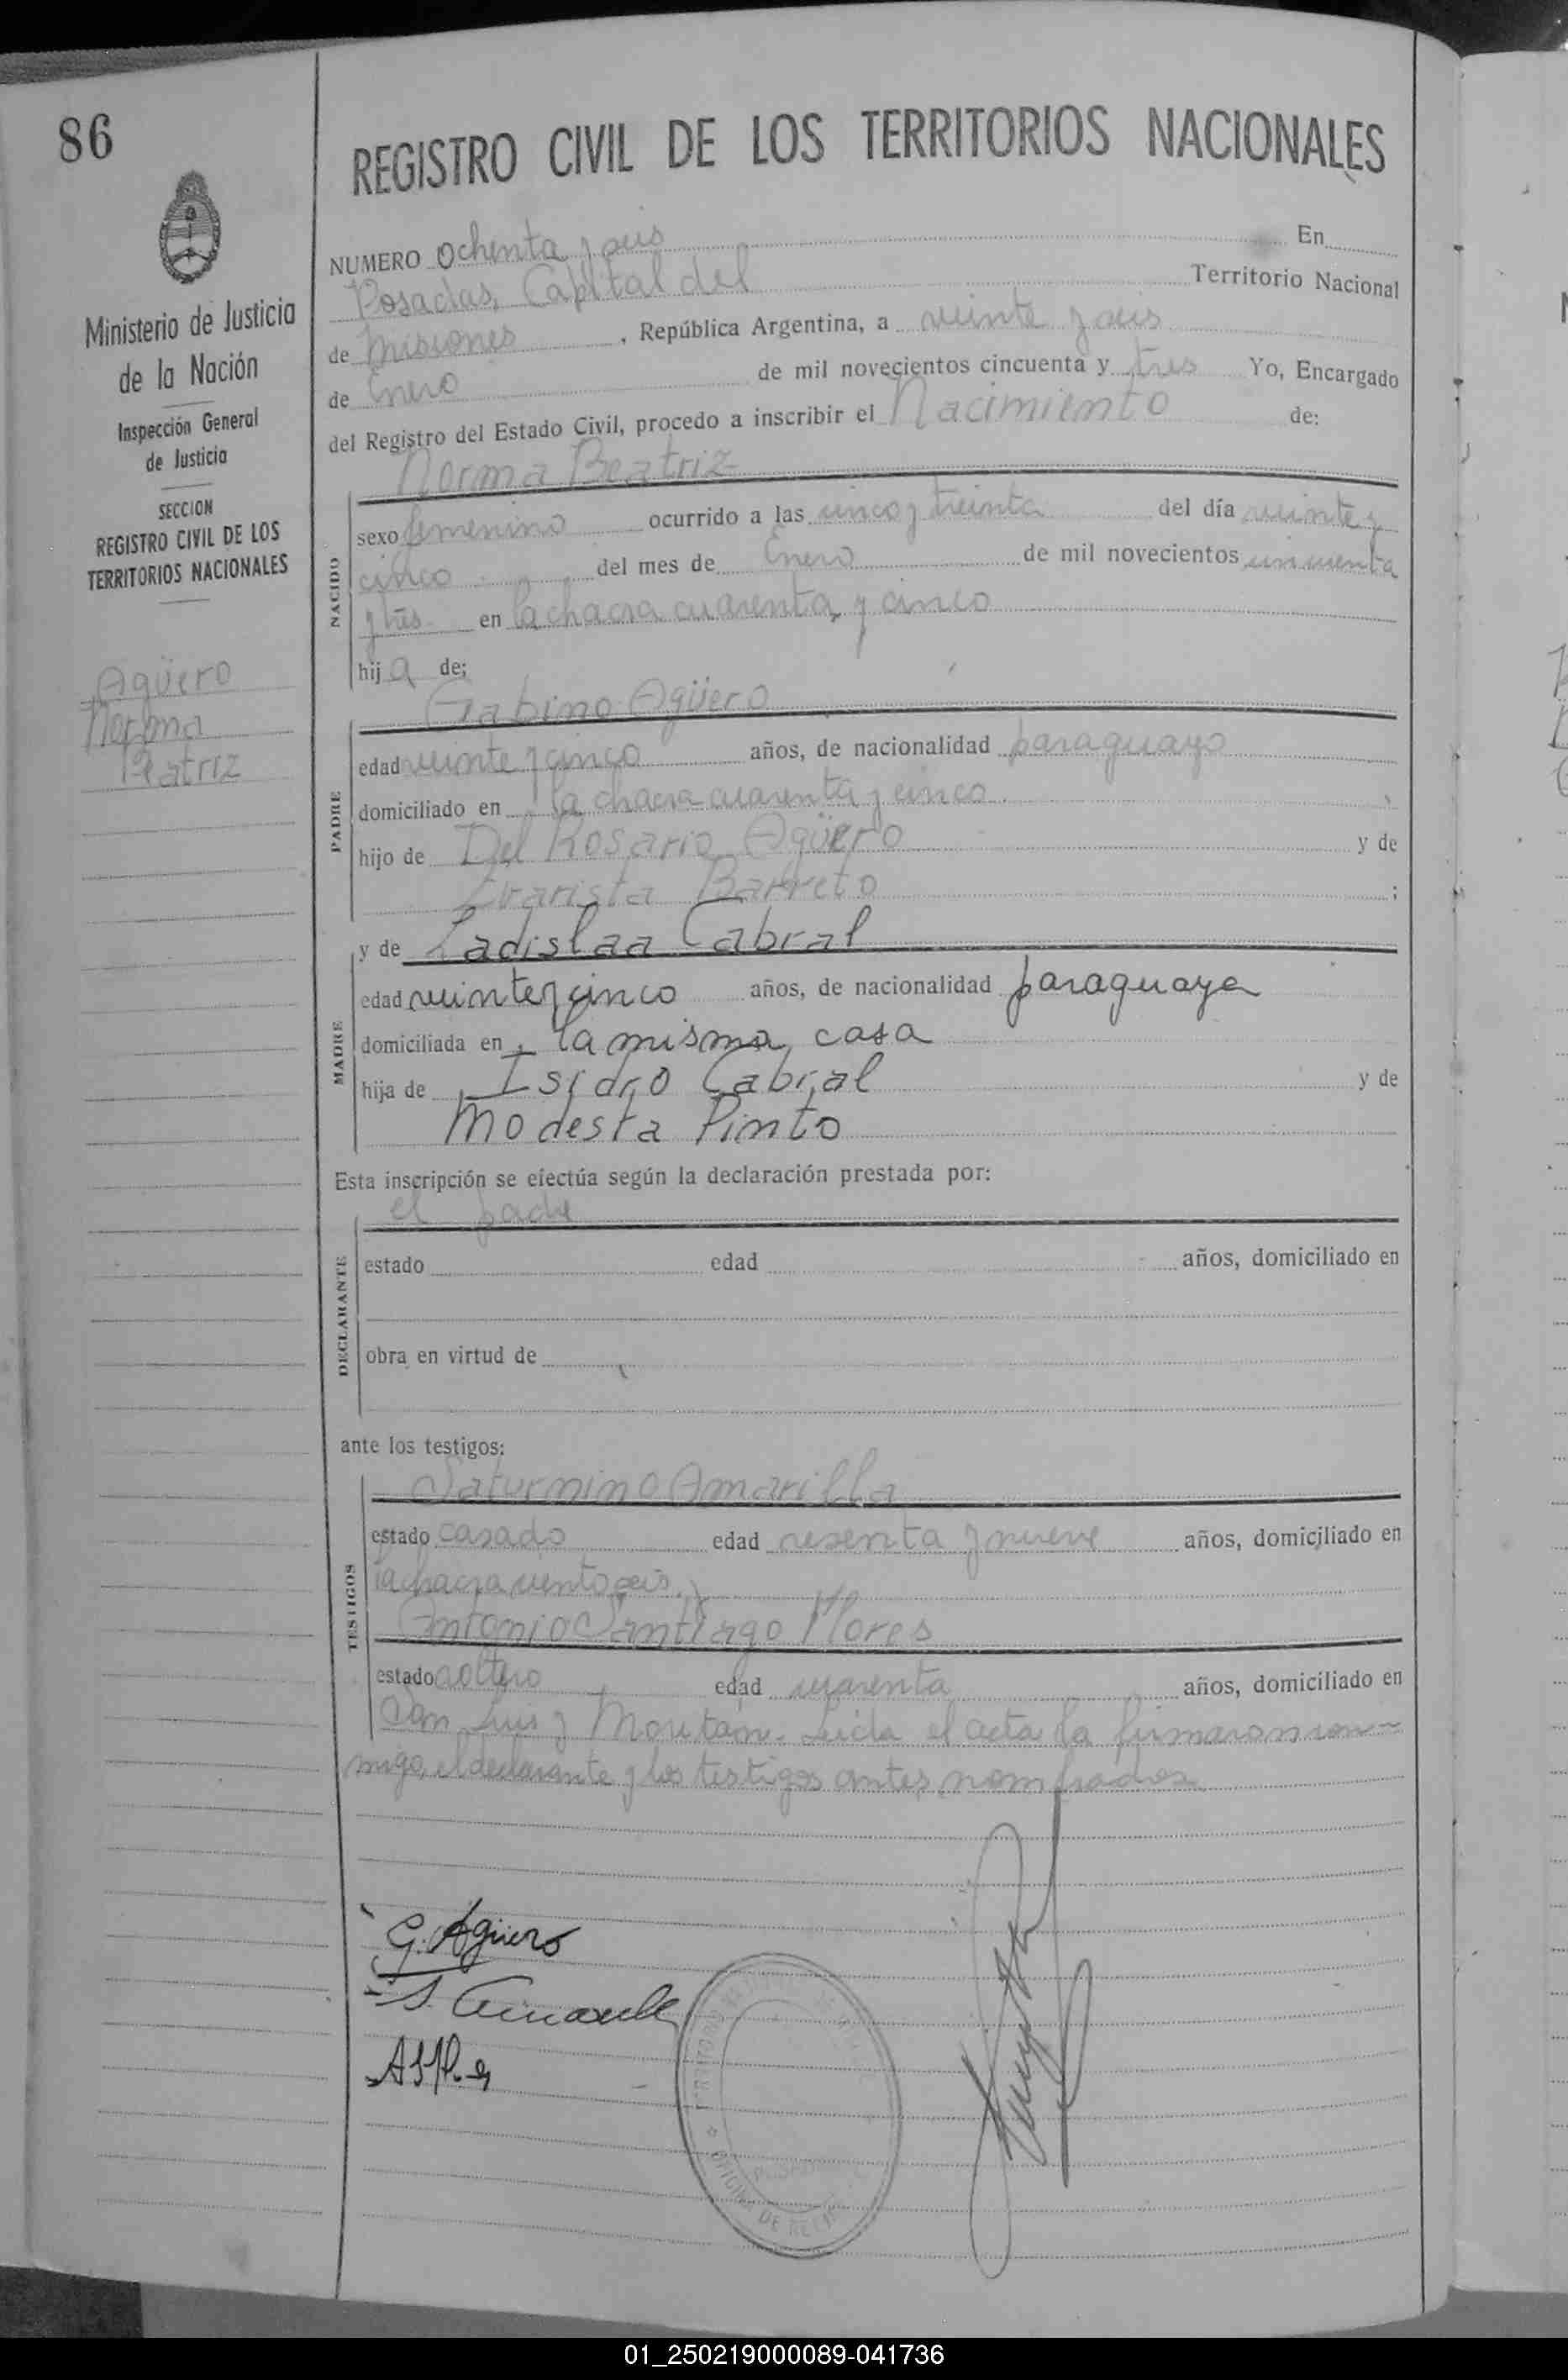 86
REGISTRO CIVIL DE LOS TERRITORIOS NACIONALES
Ministerio de Justicia
de la Nación
Inspección General
de Justicia
SECCION
REGISTRO CIVIL DE LOS
TERRITORIOS NACIONALES
Agüero
Norma
Beatriz
NUMERO Ochenta y seis En
Posadas, Capital del Territorio Nacional
de Misiones, República Argentina, a veinte y seis
de Enero de mil novecientos cincuenta y tres Yo, Encargado
del Registro del Estado Civil, procedo a inscribir el Nacimiento de:
Norma Beatriz
NACIDO
sexo femenino ocurrido a las cinco y treinta del día veinte y
cinco del mes de Enero de mil novecientos cincuenta
y tres en la chacra cuarenta y cinco
hija de;
Gabino Agüero
PADRE
edad veinte y cinco años, de nacionalidad paraguayo
domiciliado en la chacra cuarenta y cinco
hijo de Del Rosario Agüero y de
Evarista Barreto ;
MADRE
y de Ladislaa Cabral
edad veinte y cinco años, de nacionalidad paraguaya
domiciliada en la misma casa
hija de Isidro Cabral y de
Modesta Pinto
Esta inscripción se efectúa según la declaración prestada por:
el padre
DECLARANTE
estado edad años, domiciliado en
obra en virtud de
ante los testigos:
Saturnino Amarilla
TESTIGOS
estado casado edad sesenta y nueve años, domiciliado en
la chacra ciento seis, y
Antonio Santiago Flores
estado soltero edad cuarenta años, domiciliado en
San Luis y Moritán. Leída el acta la firmaron con-
migo, el declarante y los testigos antes nombrados
G. Agüero
S. Amarilla
OFICINA DE
01_250219000089-041736